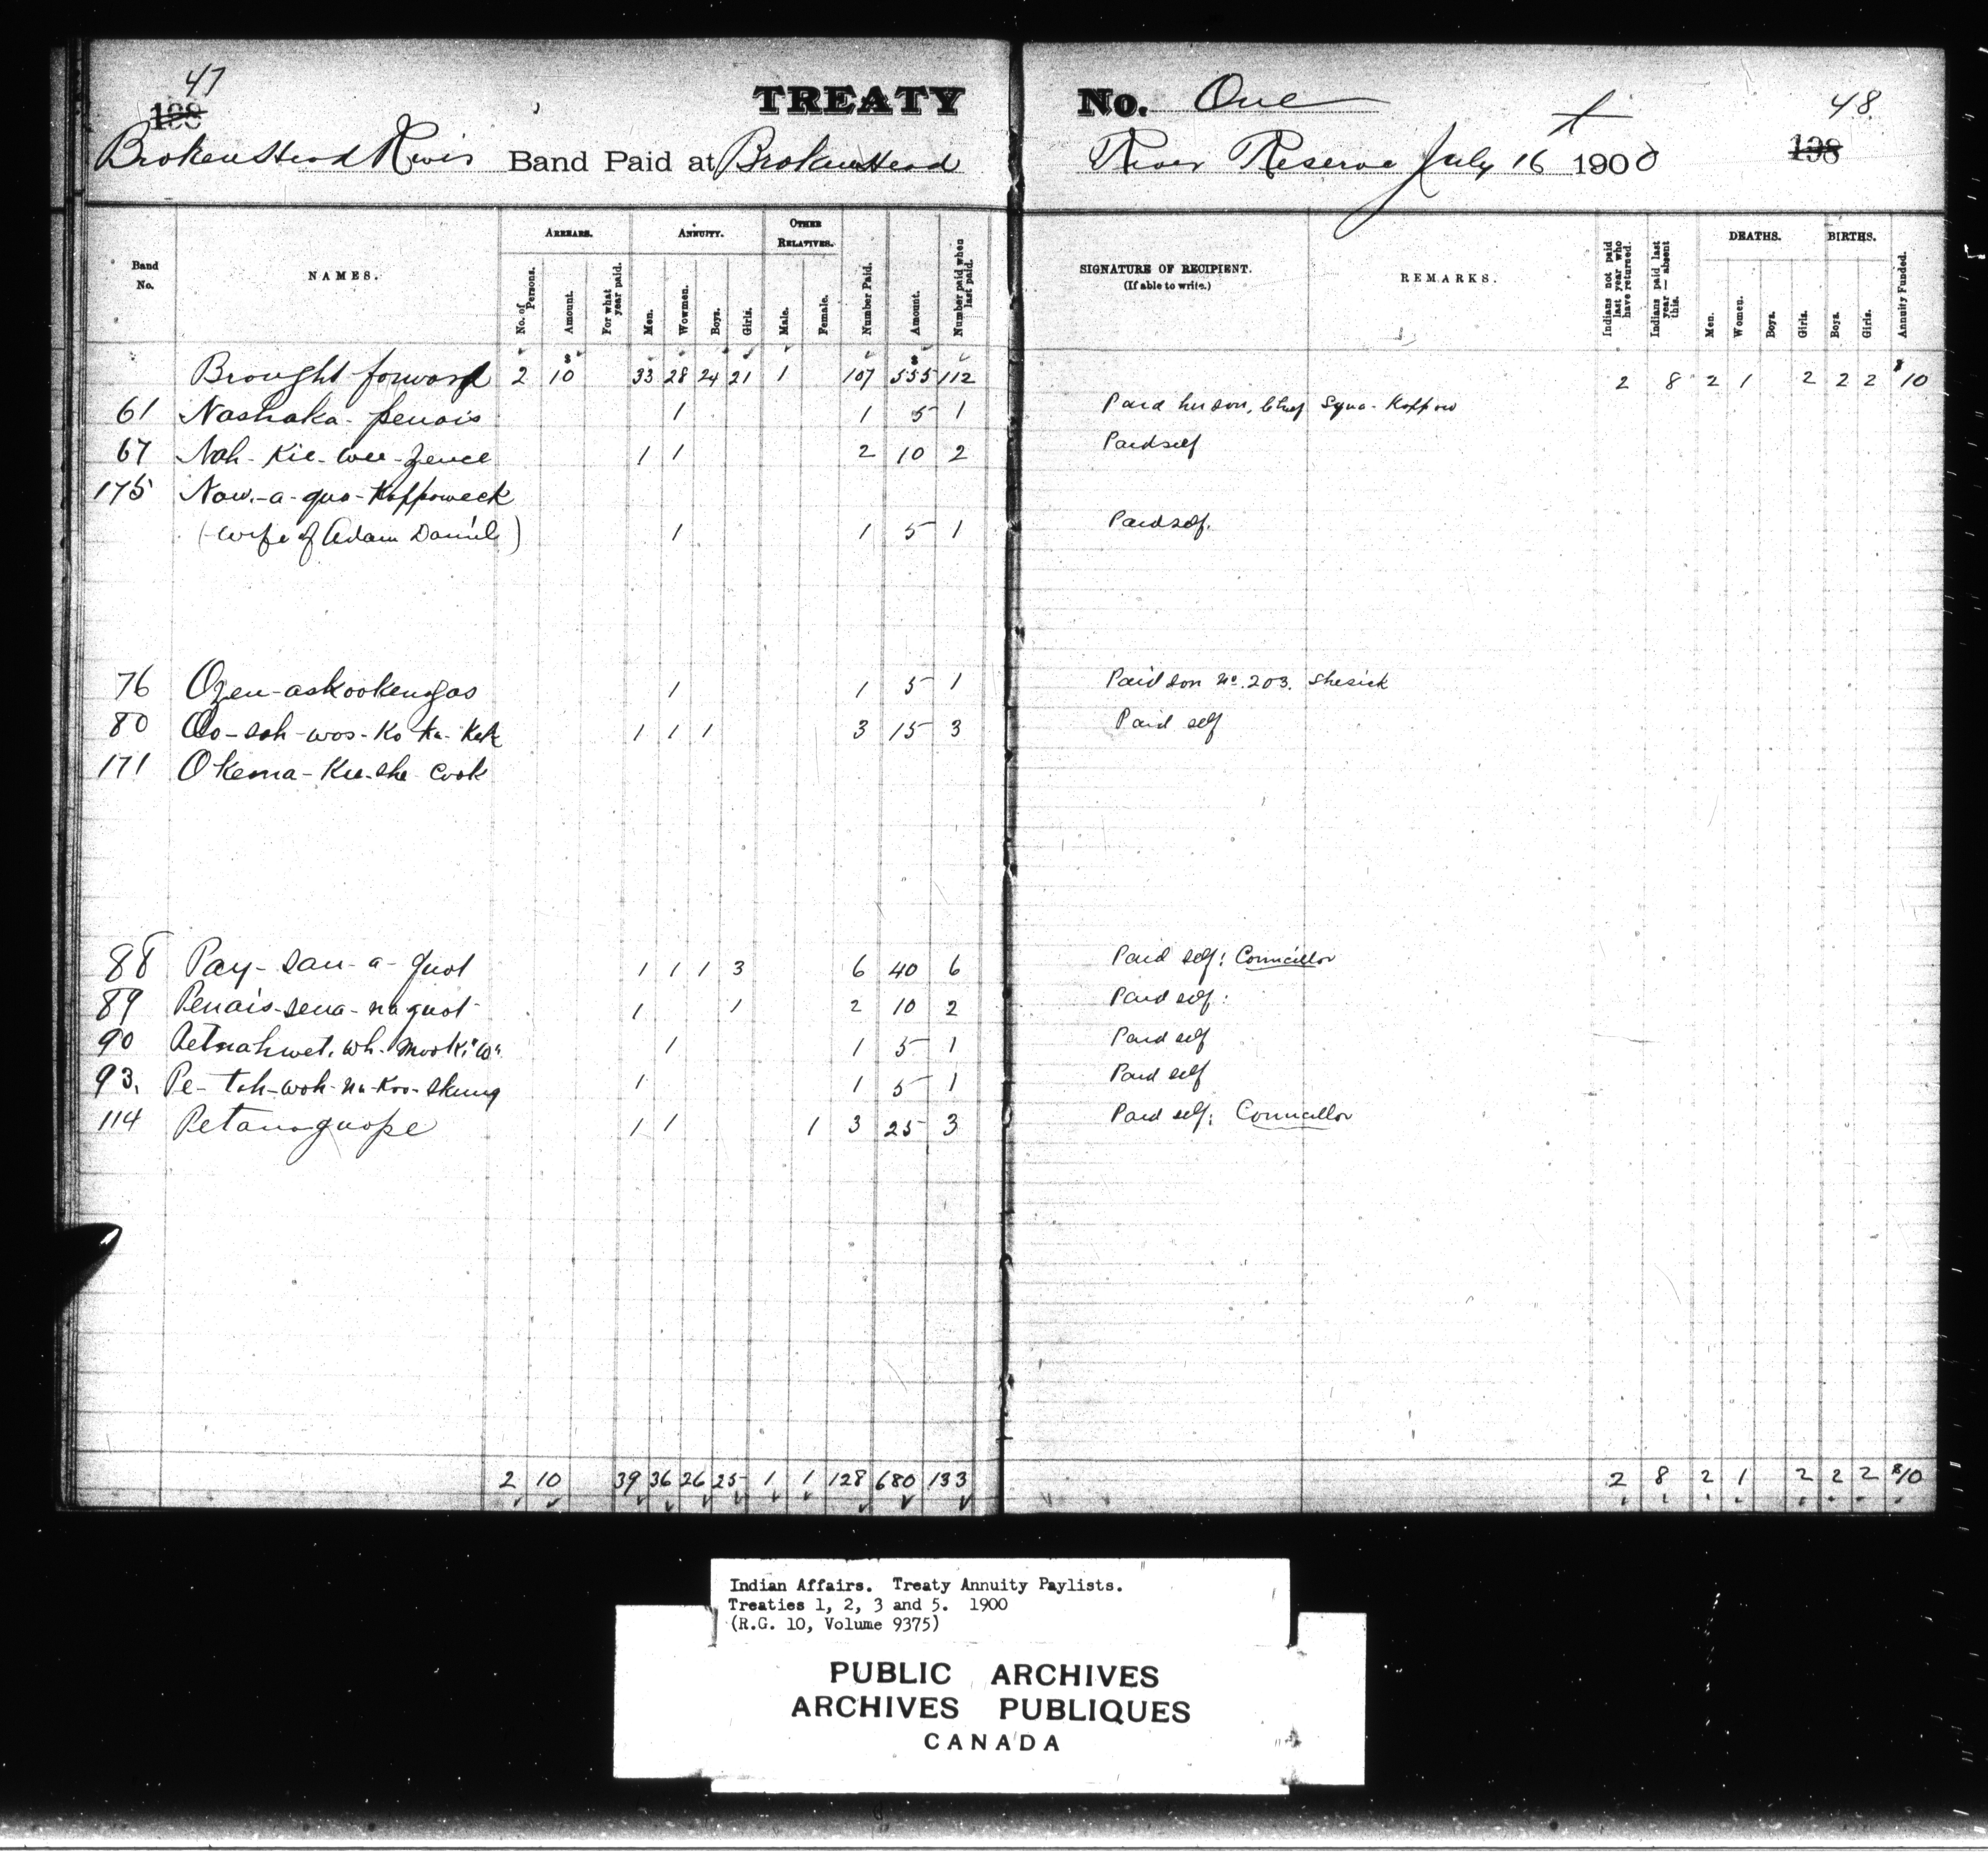 47 TREATY No. One 48.
198 198
BrokenHead River Band Paid at BrokenHead River Reserve July 16 1900
Band No. NAMES. ARREARS. No. of Persons. Amount. For what year paid. ANNUITY. Men. Wowmen. Boys. Girls. OTHER RELATIVES. Male. Female. Number Paid. Amount. Number paid when last paid. SIGNATURE OF RECIPIENT. (If able to write.) REMARKS. Indians not paid last year who have returned. Indians paid last year — absent this. DEATHS. Men. Women. Boys. Girls. BIRTHS. Boys. Girls. Annuity Funded.
Brought forward 2 $10 33 28 24 21 1 107 $555 112 2 8 2 1 2 2 2 $10
61 Nashaka-penais 1 1 5 1 Paid her son, Chief Syua-Koppow
67 Nah-Kie-wee-zence 1 1 2 10 2 Paid self
175 Naw-a-quo-Koppoweek
(wife of Adam Daniel) 1 1 5 1 Paid self.
76 Ozen-askookengas 1 1 5 1 Paid son No. 203. Shesick
80 Oo-sah-wos-Ko Ka-Kek 1 1 1 3 15 3 Paid self
171 Okema-Kee-she Cook
88 Pay-sau-a-quot 1 1 1 3 6 40 6 Paid self: Councillor
89 Penais-sena-naquot 1 1 2 10 2 Paid self:
90 1 1 5 1 Paid self
93. Pe-tah-woh-na-Koo-skung 1 1 5 1 Paid self
114 Petanaquope 1 1 1 3 25 3 Paid self: Councillor
2 10 39 36 26 25 1 1 128 680 133 2 8 2 1 2 2 2 $10
Indian Affairs. Treaty Annuity Paylists.
Treaties 1, 2, 3 and 5. 1900
(R.G. 10, Volume 9375)
PUBLIC ARCHIVES
ARCHIVES PUBLIQUES
CANADA